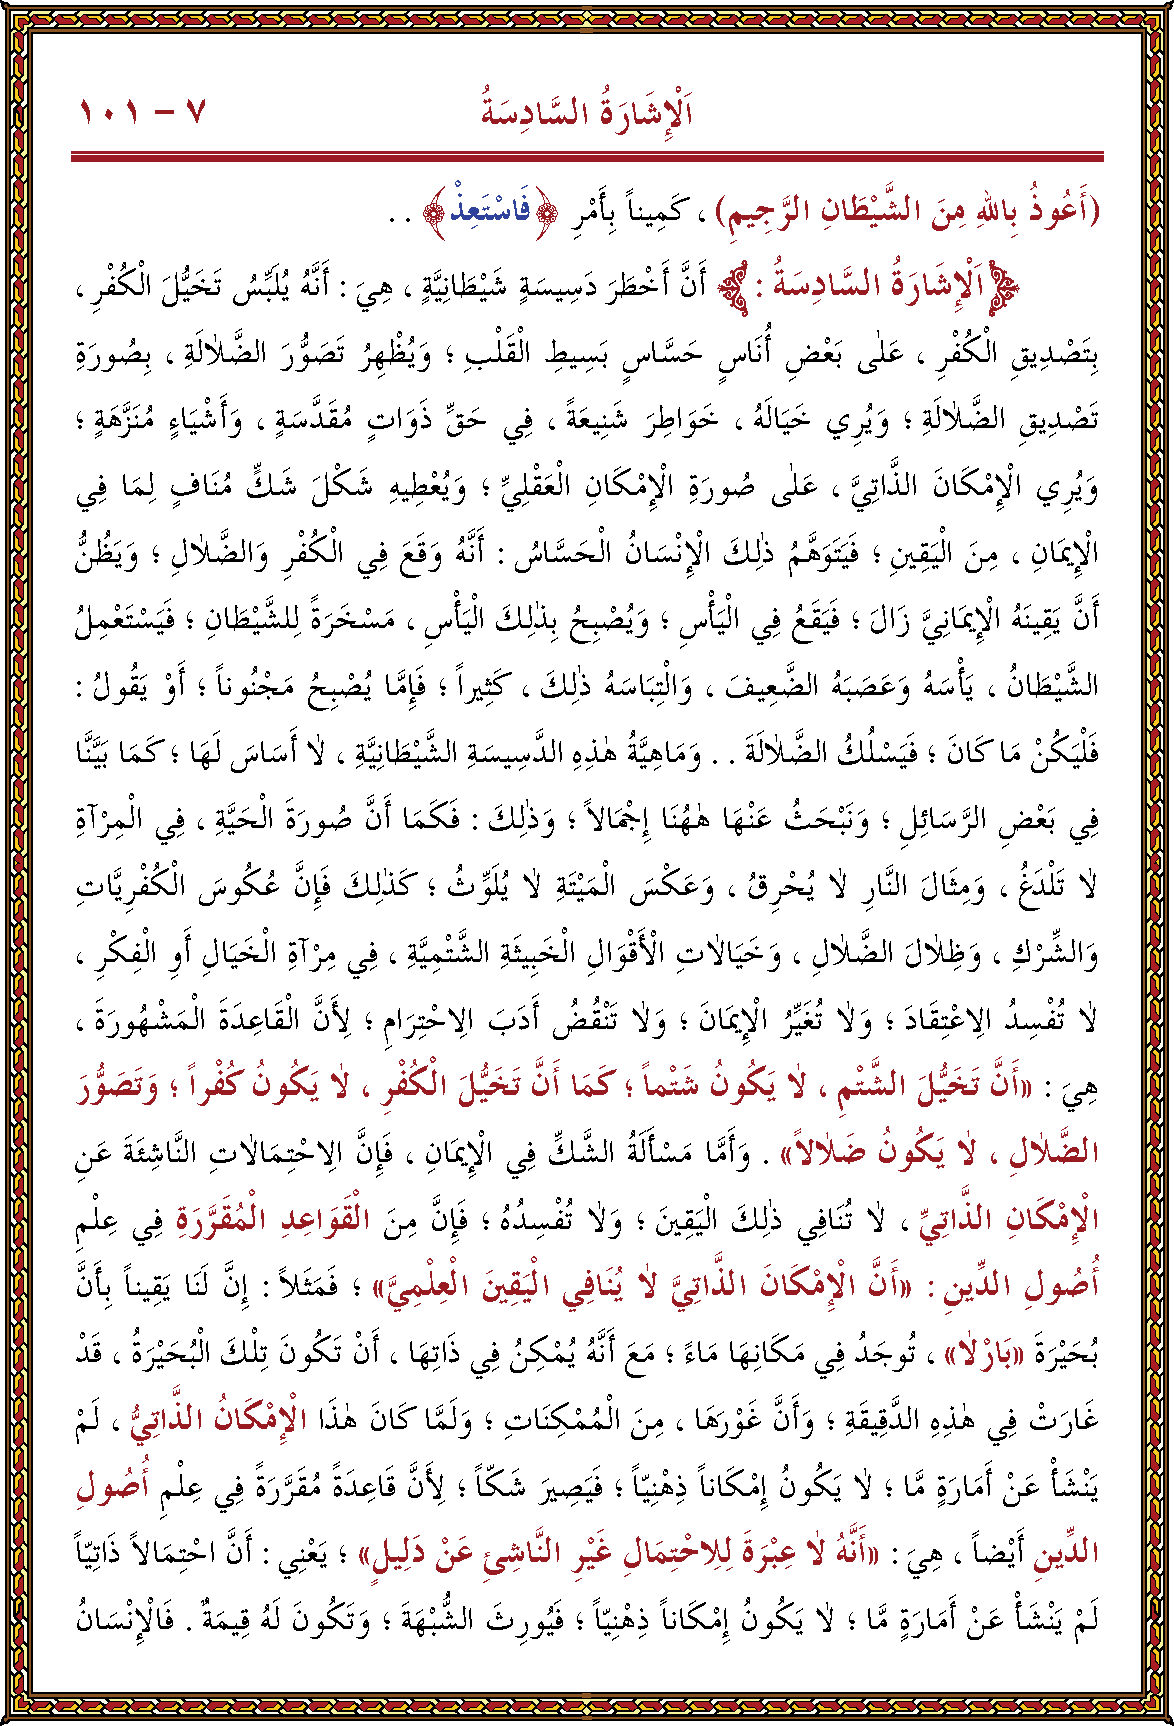 اَلْإِشَارَةُ السَّادِسَةُ ٧ – ١٠١
(أَعُوذُ بِاللهِ مِنَ الشَّيْطَانِ الرَّجِيمِ) ، كَمِيناً بِأَمْرِ ﴿فَاسْتَعِذْ﴾ . .
﴿اَلْإِشَارَةُ السَّادِسَةُ : ﴾ أَنَّ أَخْطَرَ دَسِيسَةٍ شَيْطَانِيَّةٍ ، هِيَ : أَنَّهُ يُلَبِّسُ تَخَيُّلَ الْكُفْرِ ،
بِتَصْدِيقِ الْكُفْرِ ، عَلٰى بَعْضِ أُنَاسٍ حَسَّاسٍ بَسِيطِ الْقَلْبِ ؛ وَيُظْهِرُ تَصَوُّرَ الضَّلٰالَةِ ، بِصُورَةِ
تَصْدِيقِ الضَّلٰالَةِ ؛ وَيُرِي خَيَالَهُ ، خَوَاطِرَ شَنِيعَةً ، فِي حَقِّ ذَوَاتٍ مُقَدَّسَةٍ ، وَأَشْيَاءٍ مُنَزَّهَةٍ ؛
وَيُرِي الْإِمْكَانَ الذَّاتِيَّ ، عَلٰى صُورَةِ الْإِمْكَانِ الْعَقْلِيِّ ؛ وَيُعْطِيهِ شَكْلَ شَكٍّ مُنَافٍ لِمَا فِي
الْإِيمَانِ ، مِنَ الْيَقِينِ ؛ فَيَتَوَهَّمُ ذٰلِكَ الْإِنْسَانُ الْحَسَّاسُ : أَنَّهُ وَقَعَ فِي الْكُفْرِ وَالضَّلٰالِ ؛ وَيَظُنُّ
أَنَّ يَقِينَهُ الْإِيمَانِيَّ زَالَ ؛ فَيَقَعُ فِي الْيَأْسِ ؛ وَيُصْبِحُ بِذٰلِكَ الْيَأْسِ ، مَسْخَرَةً لِلشَّيْطَانِ ؛ فَيَسْتَعْمِلُ
الشَّيْطَانُ ، يَأْسَهُ وَعَصَبَهُ الضَّعِيفَ ، وَالْتِبَاسَهُ ذٰلِكَ ، كَثِيراً ؛ فَإِمَّا يُصْبِحُ مَجْنُوناً ؛ أَوْ يَقُولُ :
فَلْيَكُنْ مَا كَانَ ؛ فَيَسْلُكُ الضَّلٰالَةَ . . وَمَاهِيَّةُ هٰذِهِ الدَّسِيسَةِ الشَّيْطَانِيَّةِ ، لٰا أَسَاسَ لَهَا ؛ كَمَا بَيَّنَّا
فِي بَعْضِ الرَّسَائِلِ ؛ وَنَبْحَثُ عَنْهَا هٰهُنَا إِجْمَالاً ؛ وَذٰلِكَ : فَكَمَا أَنَّ صُورَةَ الْحَيَّةِ ، فِي الْمِرْآةِ
لٰا تَلْدَغُ ، وَمِثَالَ النَّارِ لٰا يُحْرِقُ ، وَعَكْسَ الْمَيْتَةِ لٰا يُلَوِّثُ ؛ كَذٰلِكَ فَإِنَّ عُكُوسَ الْكُفْرِيَّاتِ
وَالشِّرْكِ ، وَظِلٰالَ الضَّلٰالِ ، وَخَيَالٰاتِ الْأَقْوَالِ الْخَبِيثَةِ الشَّتْمِيَّةِ ، فِي مِرْآةِ الْخَيَالِ أَوِ الْفِكْرِ ،
لٰا تُفْسِدُ الِاعْتِقَادَ ؛ وَلٰا تُغَيِّرُ الْإِيمَانَ ؛ وَلٰا تَنْقُضُ أَدَبَ الِاحْتِرَامِ ؛ لِأَنَّ الْقَاعِدَةَ الْمَشْهُورَةَ ،
هِيَ : «أَنَّ تَخَيُّلَ الشَّتْمِ ، لٰا يَكُونُ شَتْماً ؛ كَمَا أَنَّ تَخَيُّلَ الْكُفْرِ ، لٰا يَكُونُ كُفْراً ؛ وَتَصَوُّرَ
الضَّلٰالِ ، لٰا يَكُونُ ضَلٰالاً» . وَأَمَّا مَسْأَلَةُ الشَّكِّ فِي الْإِيمَانِ ، فَإِنَّ الِاحْتِمَالٰاتِ النَّاشِئَةَ عَنِ
الْإِمْكَانِ الذَّاتِيِّ ، لٰا تُنَافِي ذٰلِكَ الْيَقِينَ ؛ وَلٰا تُفْسِدُهُ ؛ فَإِنَّ مِنَ الْقَوَاعِدِ الْمُقَرَّرَةِ فِي عِلْمِ
أُصُولِ الدِّينِ : «أَنَّ الْإِمْكَانَ الذَّاتِيَّ لٰا يُنَافِي الْيَقِينَ الْعِلْمِيَّ» ؛ فَمَثَلاً : إِنَّ لَنَا يَقِيناً بِأَنَّ
بُحَيْرَةَ «بَارْلٰا» ، تُوجَدُ فِي مَكَانِهَا مَاءً ؛ مَعَ أَنَّهُ يُمْكِنُ فِي ذَاتِهَا ، أَنْ تَكُونَ تِلْكَ الْبُحَيْرَةُ ، قَدْ
غَارَتْ فِي هٰذِهِ الدَّقِيقَةِ ؛ وَأَنَّ غَوْرَهَا ، مِنَ الْمُمْكِنَاتِ ؛ وَلَمَّا كَانَ هٰذَا الْإِمْكَانُ الذَّاتِيُّ ، لَمْ
يَنْشَأْ عَنْ أَمَارَةٍ مَّا ؛ لٰا يَكُونُ إِمْكَاناً ذِهْنِيّاً ؛ فَيَصِيرَ شَكّاً ؛ لِأَنَّ قَاعِدَةً مُقَرَّرَةً فِي عِلْمِ أُصُولِ
الدِّينِ أَيْضاً ، هِيَ : «أَنَّهُ لٰا عِبْرَةَ لِلِاحْتِمَالِ غَيْرِ النَّاشِئِ عَنْ دَلِيلٍ» ؛ يَعْنِي : أَنَّ احْتِمَالاً ذَاتِيّاً
لَمْ يَنْشَأْ عَنْ أَمَارَةٍ مَّا ؛ لٰا يَكُونُ إِمْكَاناً ذِهْنِيّاً ؛ فَيُورِثَ الشُّبْهَةَ ؛ وَتَكُونَ لَهُ قِيمَةٌ . فَالْإِنْسَانُ